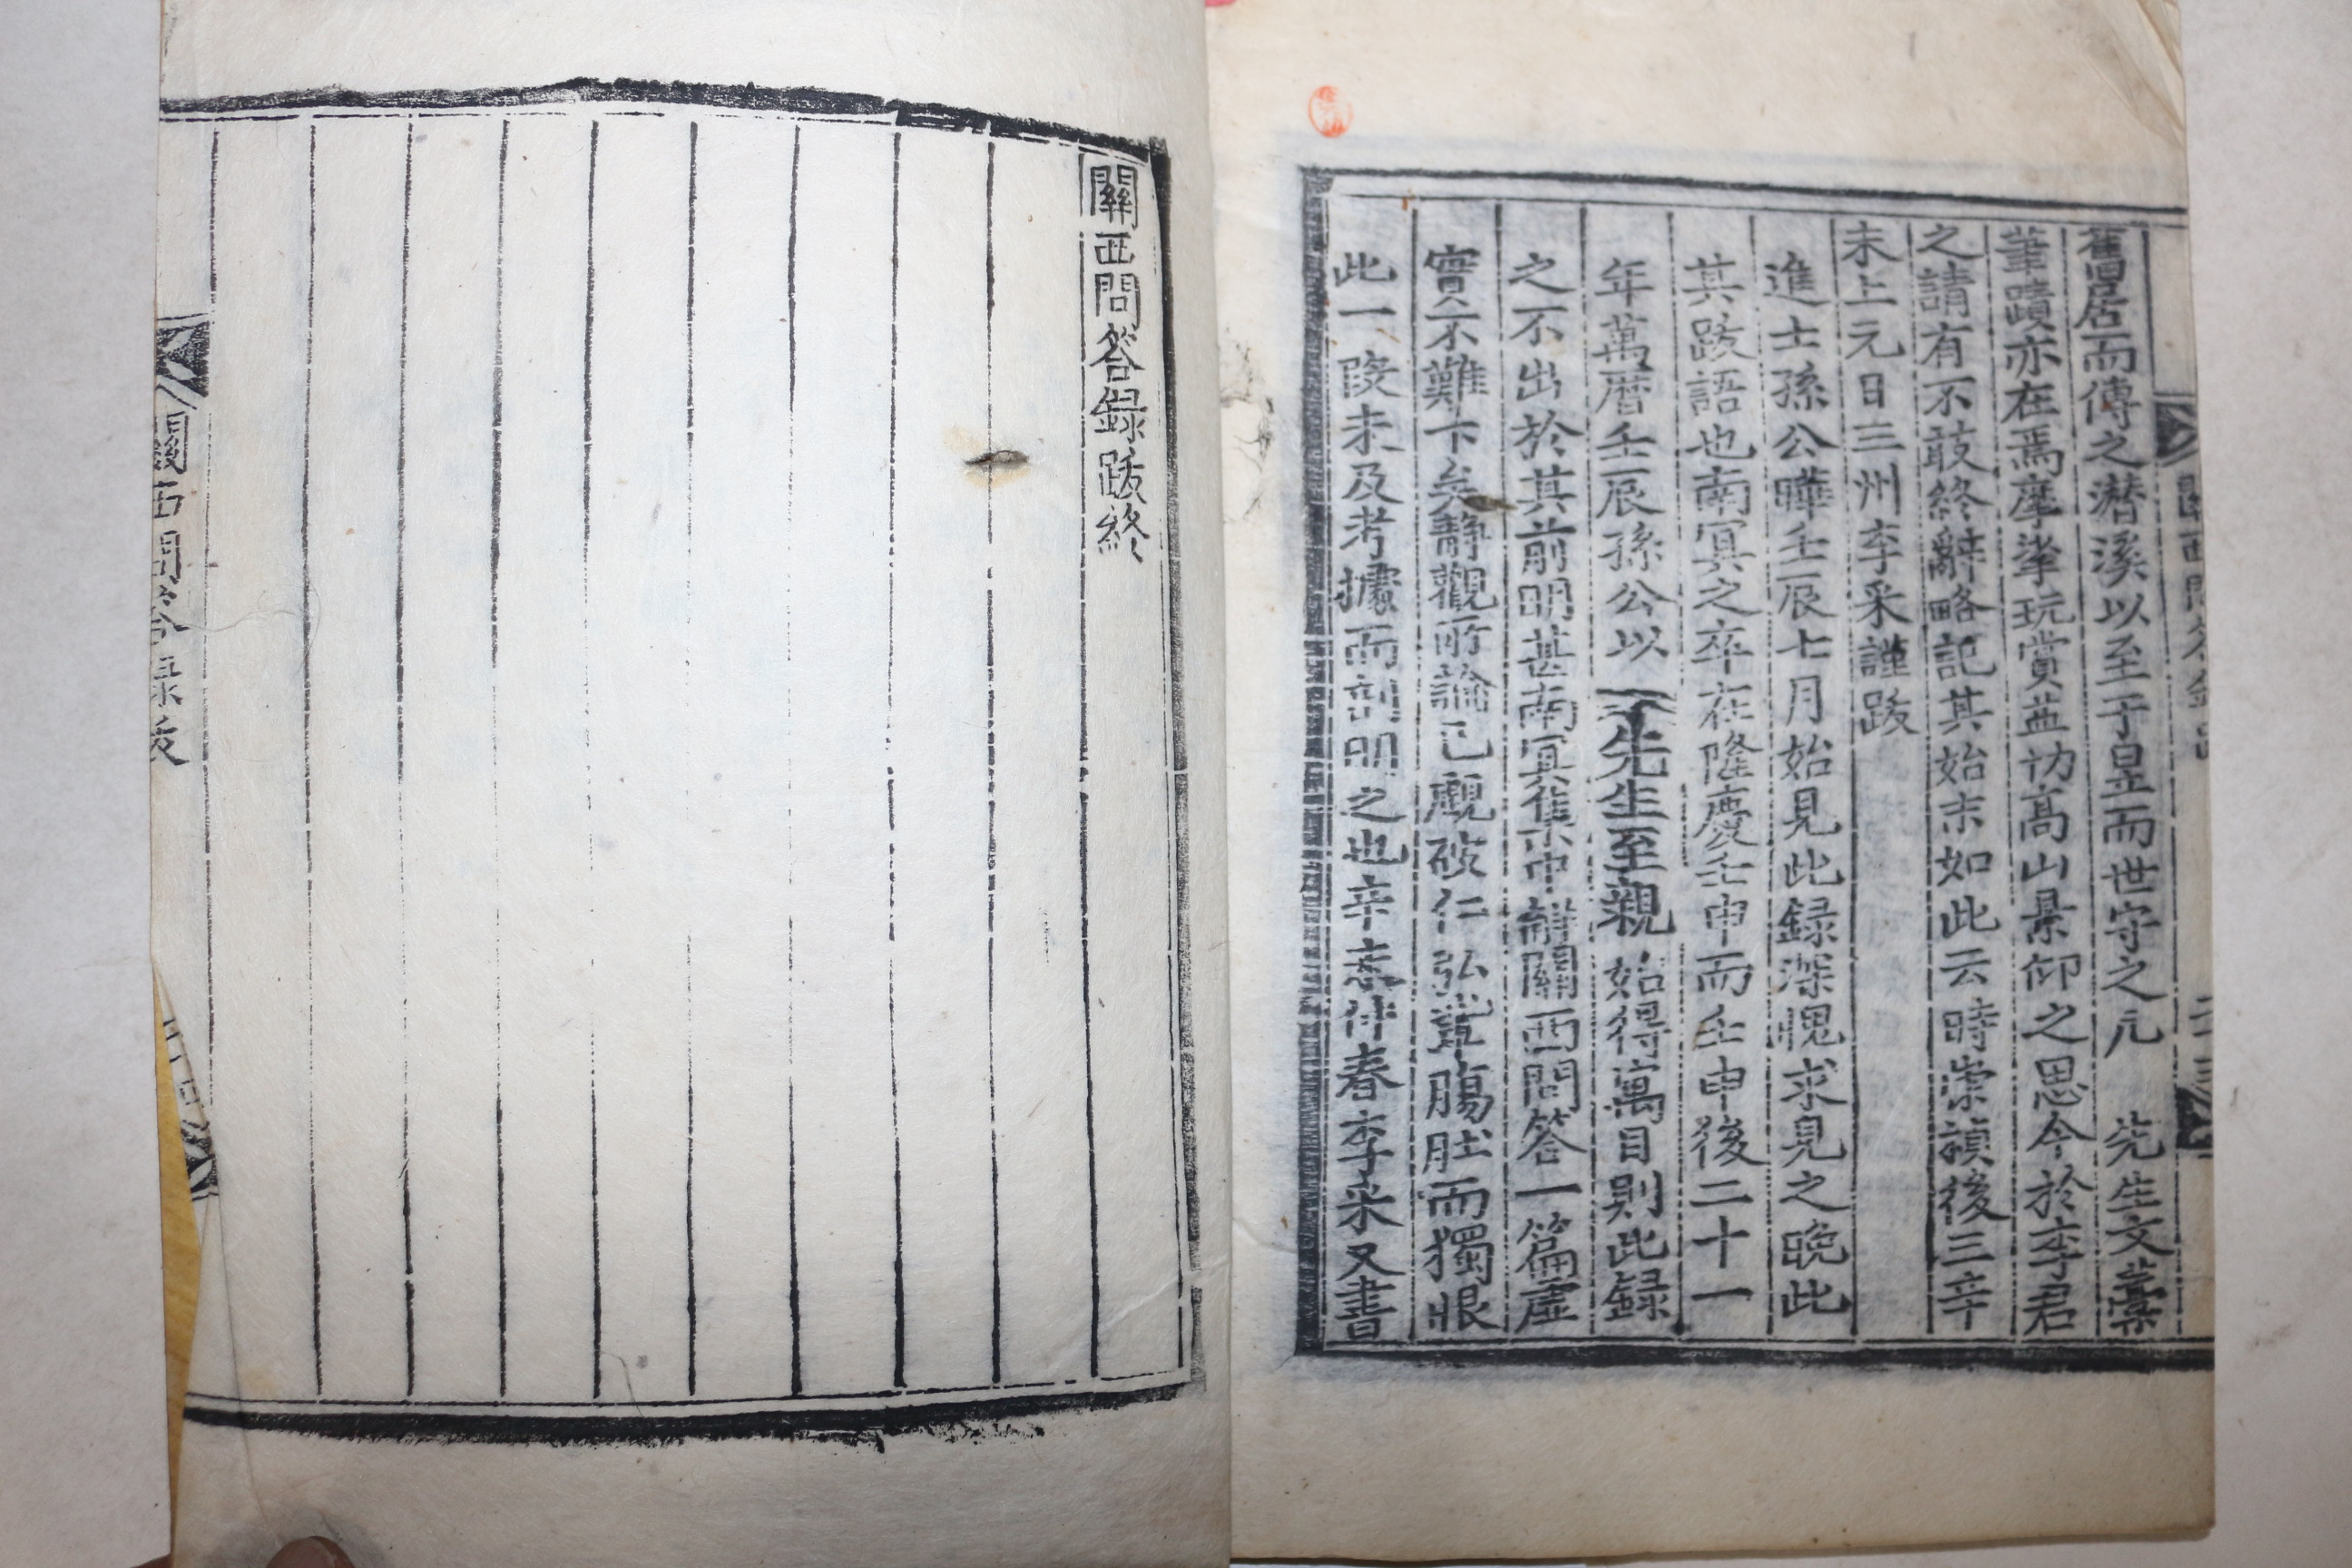 舊居而傳之潛溪以至于是而世守之元 先生文藁
筆蹟亦在焉摩挲玩賞益切高山景仰之思今於李君
之請有不敢終辭略記其始末如此云時崇禎後三辛
未上元日三州李采謹跋
進士孫公曄壬辰七月始見此録深愧求見之晩此
其跋語也南冥之卒在隆慶壬申而壬申後二十一
年萬曆壬辰孫公以 先生至親始得寓目則此録
之不出於其前明甚南冥集中辭關西問答一篇虛
實不難卞矣靜觀所論已覰破仁弘輩膓肚而獨恨
此一段未及考據而剖明之也辛 仲春李采又書
關西問答録跋
關西問答録跋終
關西問答録跋